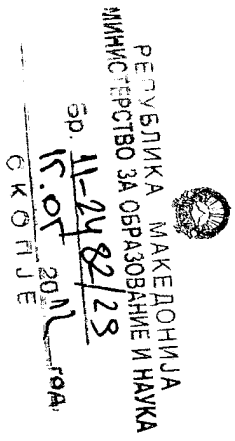 РЕПУБЛИКА МАКЕДОНИЈА
МИНИСТЕРСТВО ЗА ОБРАЗОВАНИЕ И НАУКА
Бр. 11-2482/23
20 год.
СКОПЈЕ